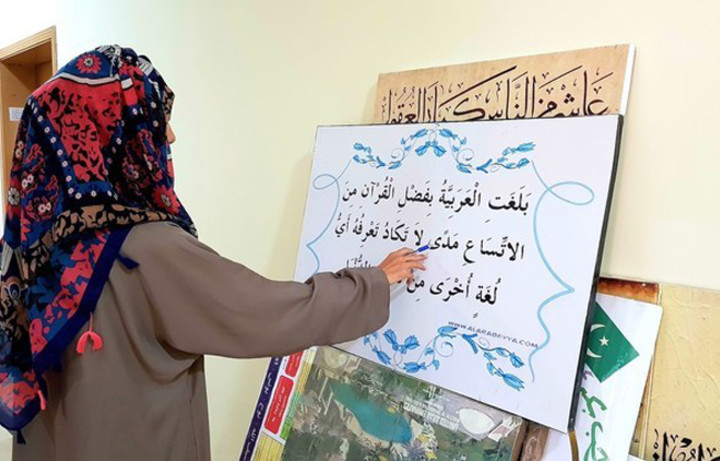 عَاشِرْ مِنَ النَّاسِ كِبَارَ العُقُولِ
بَلَغَتِ الْعَرَبِيَّةُ بِفَضْلِ الْقُرْآنِ مِنَ
الاتِّسَاعِ مَدًى لَا تَكَادُ تَعْرِفُهُ أَيُّ
لُغَةٍ أُخْرَى مِنْ
WWW.ALARABEYYA.COM